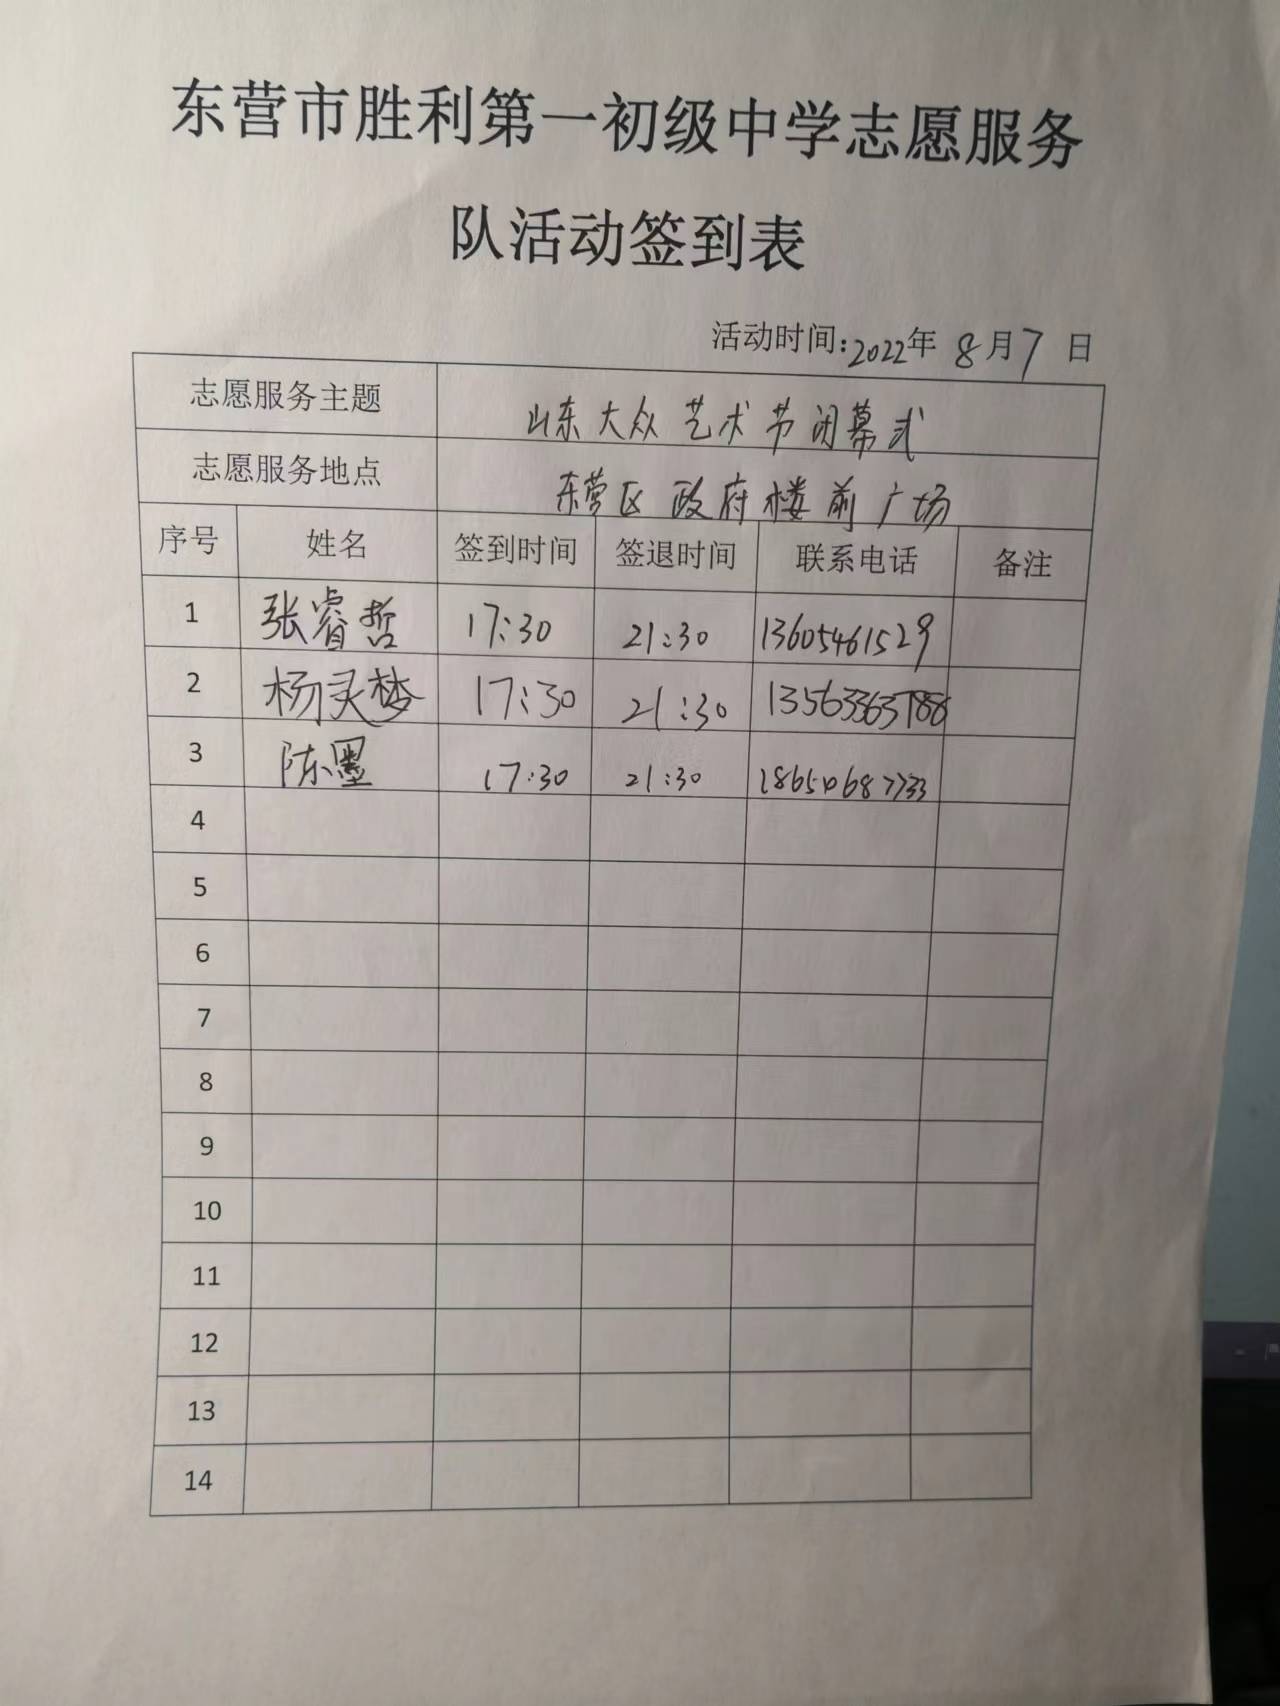 东营市胜利第一初级中学志愿服务
队活动签到表
活动时间:2022年 8月7 日
志愿服务主题 山东大众艺术节闭幕式
志愿服务地点 东营区政府楼前广场
序号 姓名 签到时间 签退时间 联系电话 备注
1 张睿哲 17:30 21:30 13605461529
2 杨灵梦 17:30 21:30
3 陈墨 17:30 21:30
4
5
6
7
8
9
10
11
12
13
14